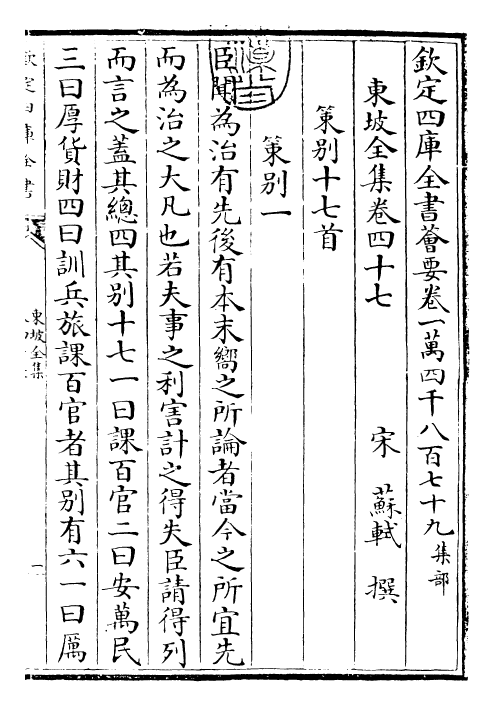 欽定四庫全書薈要卷一萬四千八百七十九集部
東坡全集卷四十七
宋 蘇軾 撰
策別十七首
策別一
臣聞為治有先後有本末嚮之所論者當今之所宜先
而為治之大凡也若夫事之利害計之得失臣請得列
而言之蓋其總四其別十七一曰課百官二曰安萬民
三曰厚貨財四曰訓兵旅課百官者其別有六一曰厲
欽定四庫全書
東坡全集
一